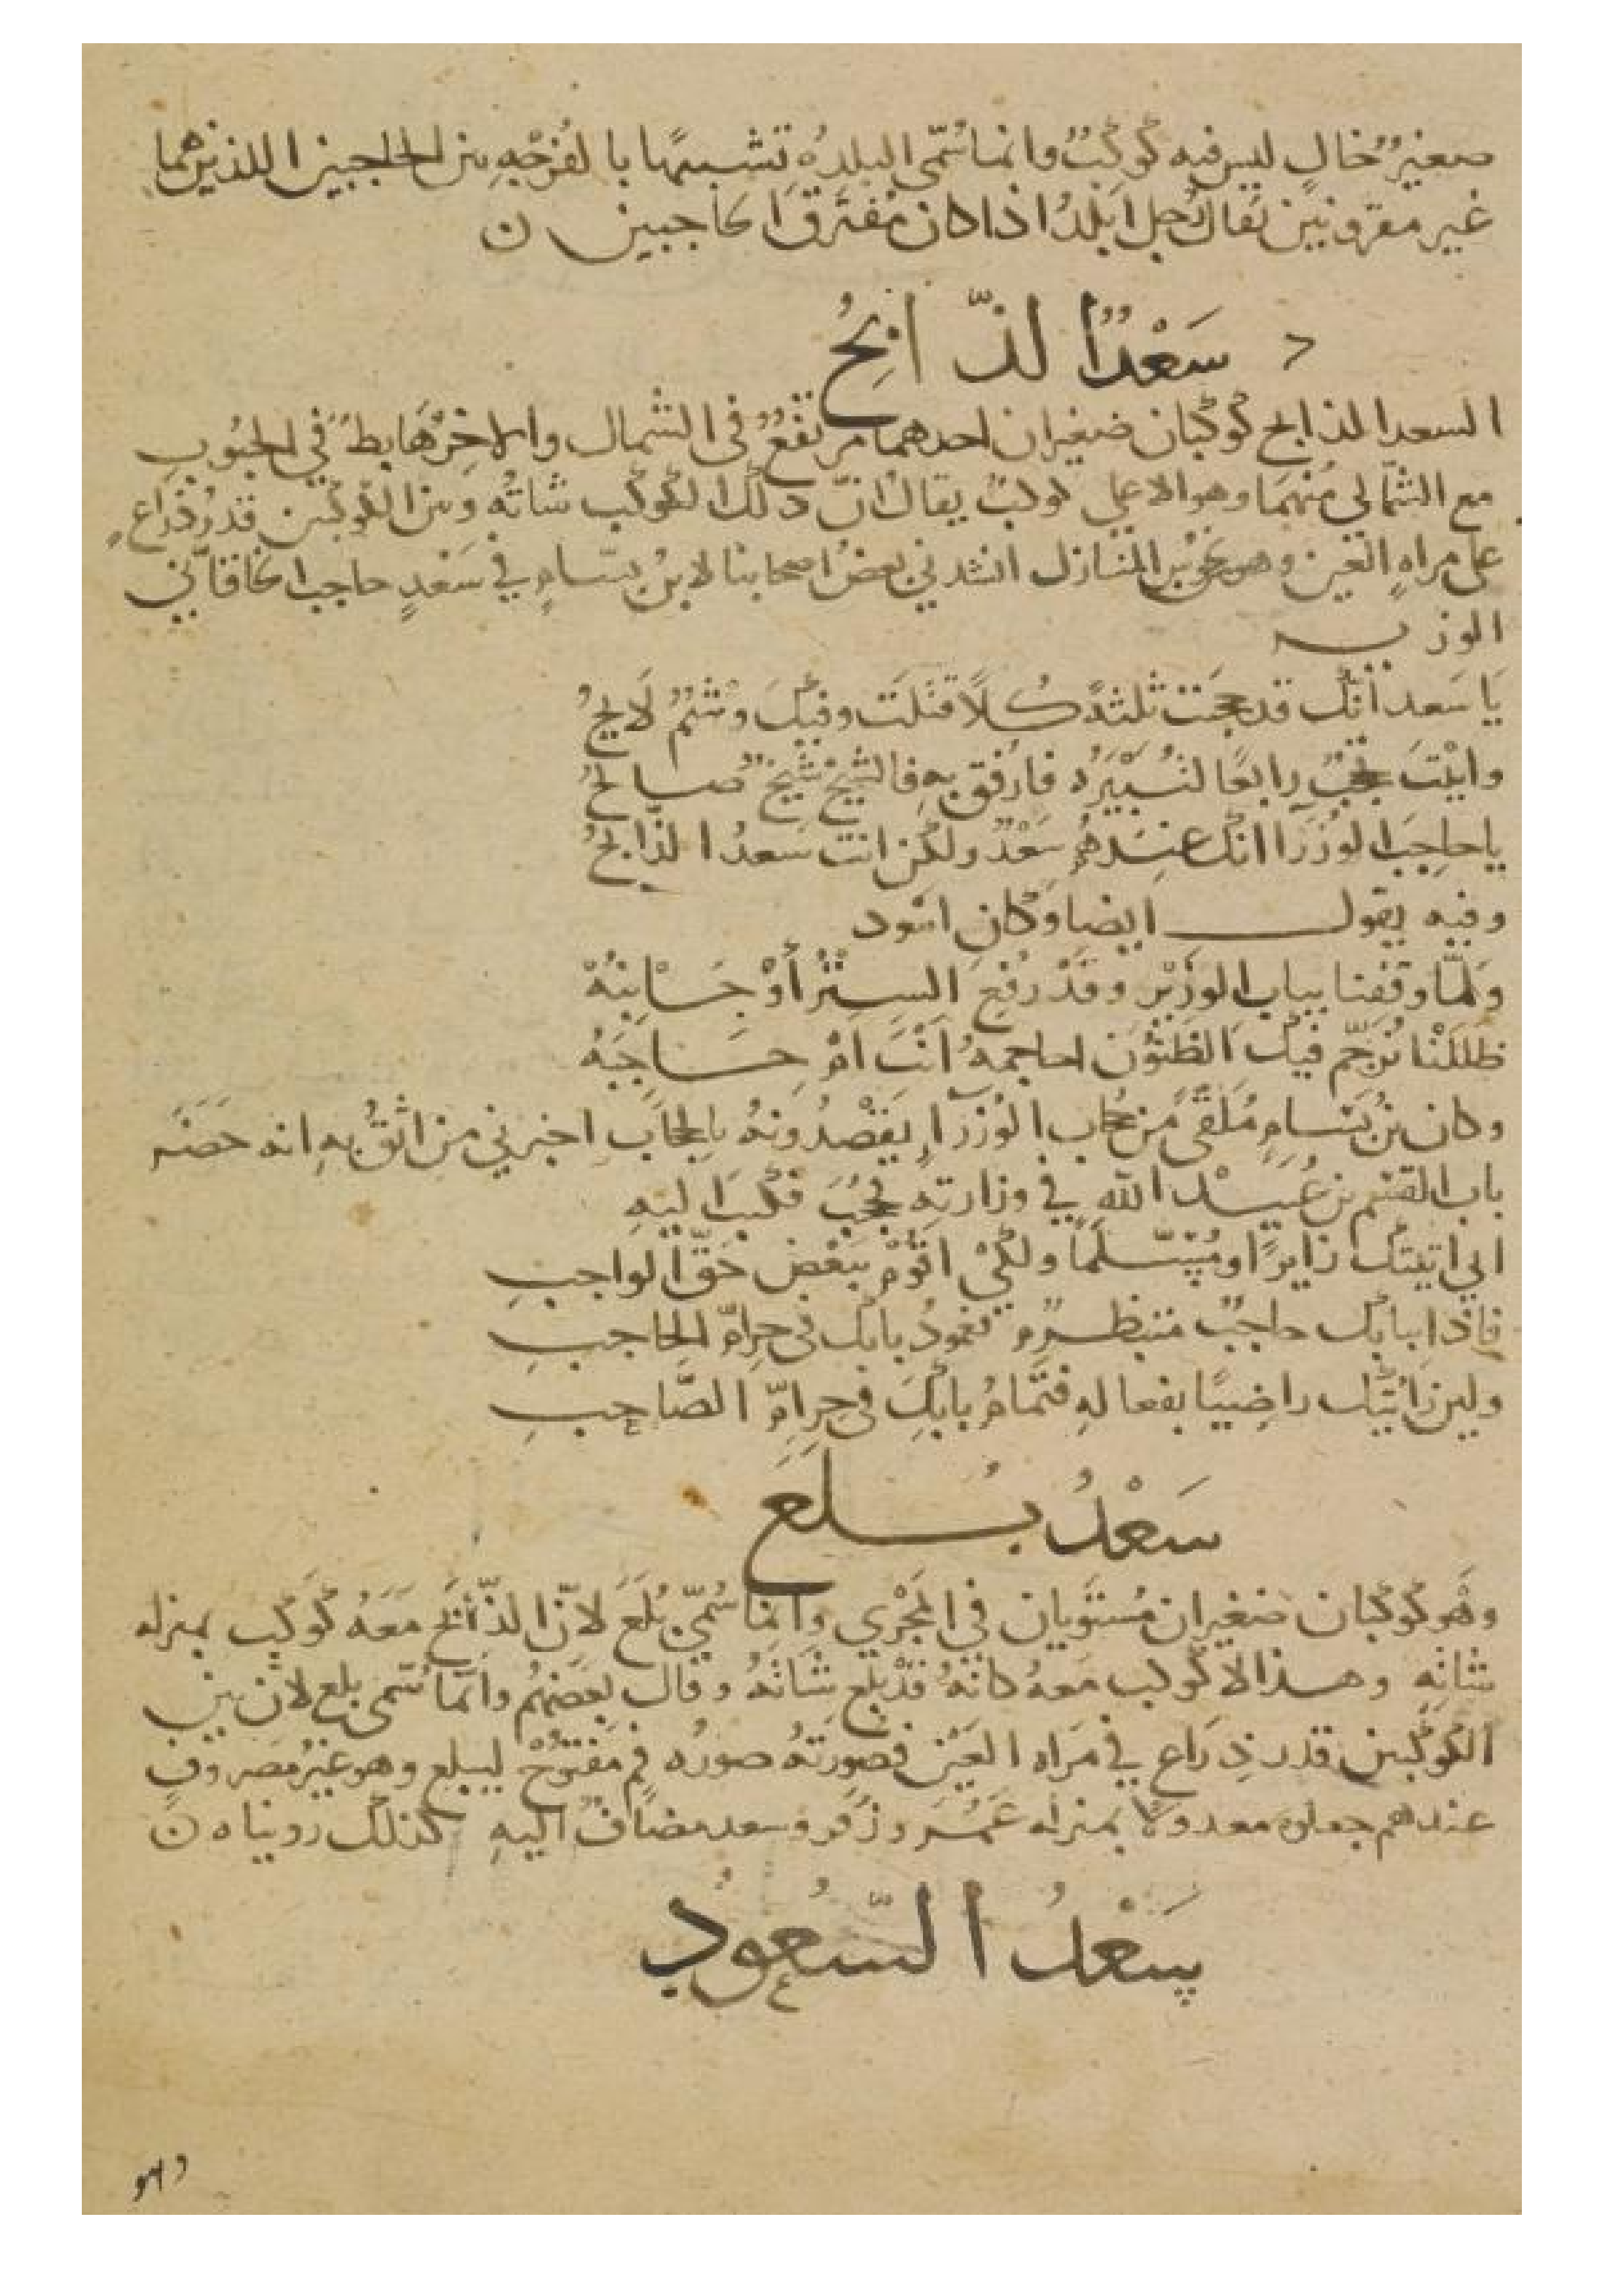 صغيرٌ خالٍ ليس فيه كوكبٌ وانما سُمّى البلدهُ تشبيهًا بالفُرْجَهِ بين الحاجبين اللذين هما
غير مقرونين يقال رجل ابلدُ اذا كان مفترق الحاجبين ن
سَعْدُ الذّابِحُ
السعد الذابح كوكبان صغيران احدهما مرتفعٌ فى الشمال والاخرُ هَابِطٌ في الجنُوبِ
مع الشَّمالي منهمَا وهو الاعلى كوكبٌ يقال انّ ذلك الكوكب شاتُه وبين الكوكبين قدرُ ذراعٍ
على مراهِ العين وهو نحو المنازل انشدني بعضُ اصحابنا لابن بسّامٍ في سَعْدٍ حاجب الخاقاني
الوزير
يَا سَعد انّك قد حجبَت ثلثةً كُلاًّ قتلَت وفيك وَشمُ لَايحُ
وايْتَ تحجبُ رابعًا لتُبِيْرَهُ فارفق بهِ فالشيخُ شيخٌ صالحُ
يا حاجِبَ الوُزَرَآ انّك عندهُم سَعْدٌ ولكن انت سَعدُ الذّابحُ
وفيه يقول ايضا وَكان اسود
وَلمّا وقَفنا بباب الوزيْر وقَدْ رُفِعَ السِتْرُ أوْ جَانِبُهْ
ظَلَلْنَا نُرَجِّم فيك الظنُونَ احاجمهُ انْتَ امْ حَاجِبُهْ
وكان بن بَسامٍ مُلقىً من حُجّاب الوُزَرَآءِ يَقْصِدُونهُ بالحجَابِ اخبرني من اثقُ بهِ انه حضَر
باب القسم بن عُبَيْد الله في وزارتِهِ فحُجبَ فكتبَ اليهِ
اني اتيتك زايرًا ومُسَلّمًا ولكَيْ اقُوْمَ ببَعْضِ حَقّ الواجبِ
فاذا ببابك حاجبٌ متنظرٌ فعمودُ بابك فى حِرِامّ الحاجبِ
ولين رَايتك راضِيًا بفعالهِ فتمَامُ بابكَ فى حِرِامّ الصَّاحبِ
سَعْدُ بُلَعَ
وَهْو كوكبان صغيران مُستويان في المَجْرَي وانما سُمّي بُلعَ لانّ الذّابحَ مَعَهُ كَوْكَب بمنزله
شاتِهِ وهذا لا كوكب مَعهُ كانهُ قدْ بلع شَاتهُ وقال بعضهُم وانّما سُمّى بلع لانّ بين
الكوكبين قدر ذِرَاع في مَراه العَيْن فصُورَتُهُ صورُه فمٍ مَفتُوحْ ليبلع وهو غيرُ مصروفٍ
عندهم جعلوه معدولًا بمنزله عُمَرَ وزُفَر وسعد مضافٌ اليهِ كذلك رويناه ن
سَعْدُ السّعُودِ